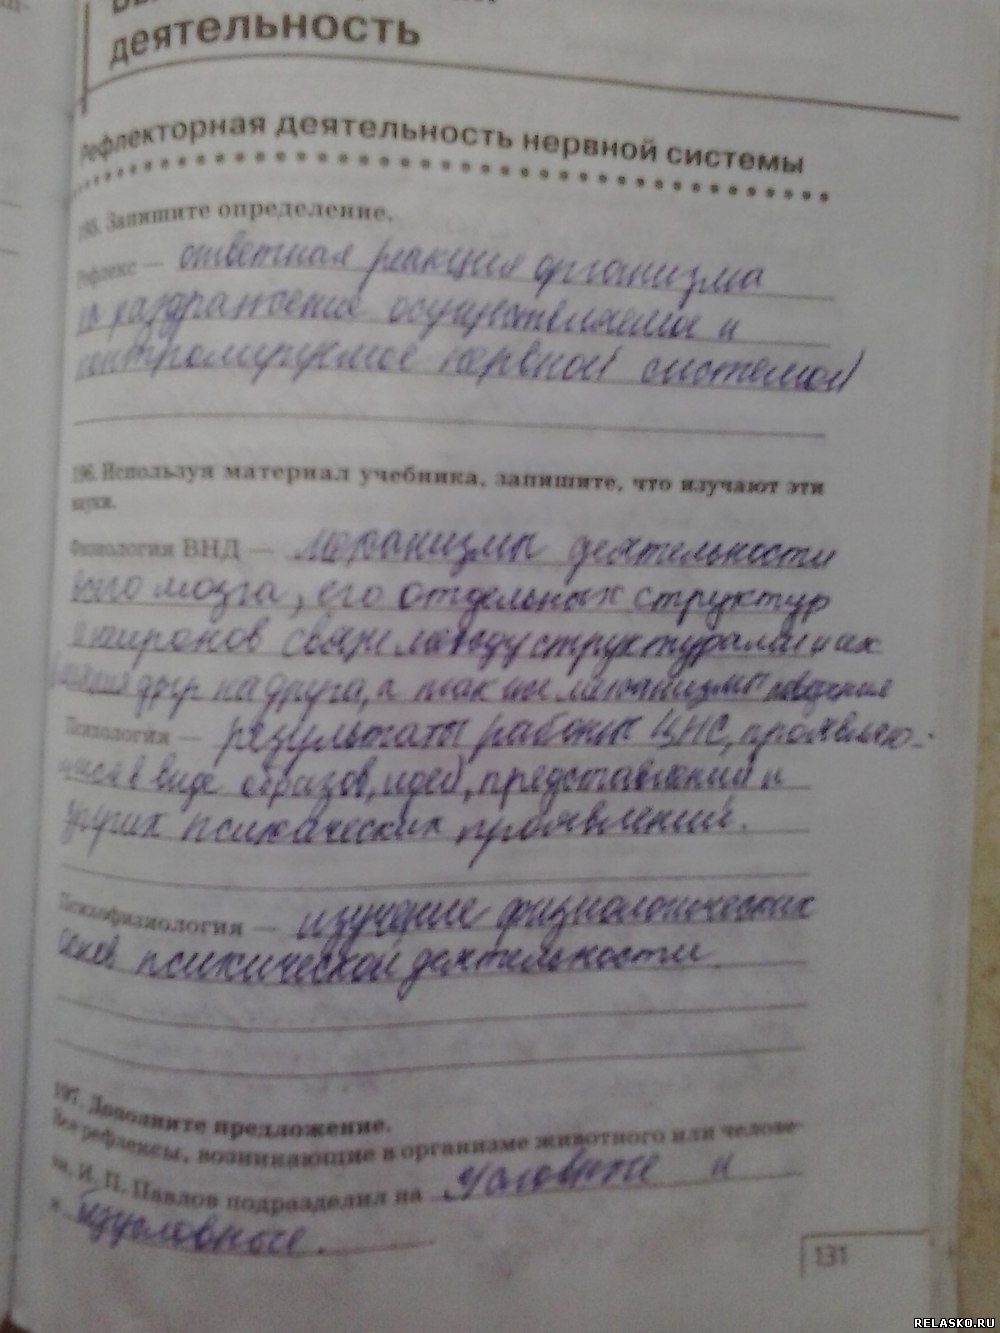 деятельность
Рефлекторная деятельность нервной системы
195. Запишите определение.
Рефлекс — ответная реакция организма
на раздражения осуществляемая и
контролируемое нервной системой
196. Используя материал учебника, запишите, что изучают эти
науки.
Физиология ВНД — механизмы деятельности
всего мозга, его отдельных структур
нейронов связи между структурами и их
влияния друг на друга, а так же механизмы поведения
Психология — результаты работы ЦНС, проявляю-
щиеся в виде образов, идей, представлений и
других психических проявлений.
Психофизиология — изучение физиологических
основ психической деятельности
197. Дополните предложение.
Все рефлексы, возникающие в организме животного или челове-
ка, И. П. Павлов подразделил на условные и
и безусловные.
131
RELASKO.RU